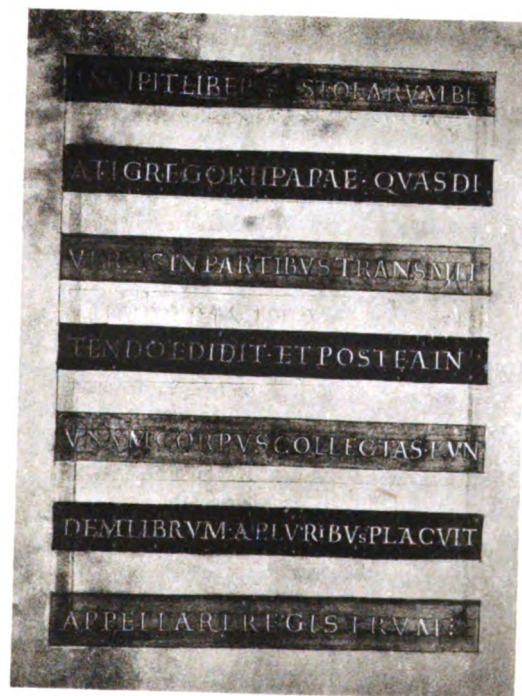 INCIPIT LIBER EPISTOLARVM BE
ATI GREGORII PAPAE · QVAS DI
VERSIS IN PARTIBVS TRANSMIT
TENDO EDIDIT · ET POSTEA IN
VNVM CORPVS COLLECTAS · EVN
DEM LIBRVM · A PLVRIBVS PLACVIT
APPELLARI REGISTRVM :